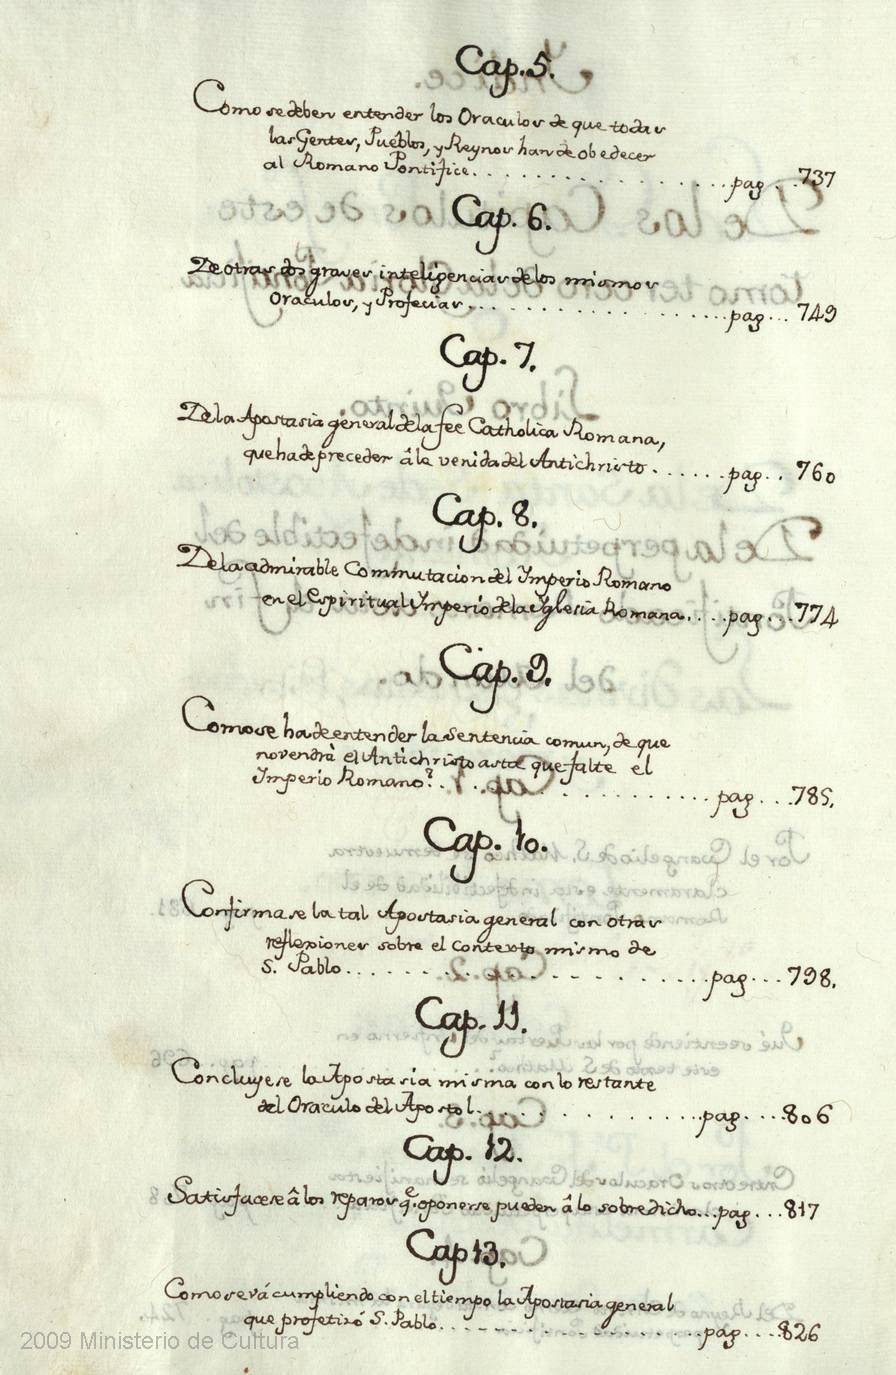 Cap. 5.
Como se deben entender los Oraculos de que todas
las Gentes, Pueblos, y Reynos han de obedecer
al Romano Pontifice. . . . . . . . . . . . . . . . . pag . . 737
Cap. 6.
De otras dos graves inteligencias de los mismos
Oraculos, y Profecias. . . . . . . . . . . . . . . . . pag. . . 749
Cap. 7.
De la Apostasia general de la fee Catholica Romana,
que ha de preceder â la venida del Antichristo . . . . . . pag. . 760
Cap. 8.
De la admirable Commutacion del Imperio Romano
en el Espiritual Imperio de la Yglesia Romana. . . . pag. . . 774
Cap. 9.
Como se ha de entender la sentencia comun, de que
no vendrà el Antichristo asta que falte el
Imperio Romano? . . . . . . . . . . . . . . . . pag. . . 785.
Cap. 10.
Confirmase la tal Apostasia general con otras
reflexiones sobre el contexto mismo de
S. Pablo. . . . . . . . . . . . . . . . . . . pag. . . 798.
Cap. 11.
Concluyese la Apostasia misma con lo restante
del Oraculo del Apostol. . . . . . . . . . . . . pag. . . . 806
Cap. 12.
Satisfacese â los reparos q.e oponerse pueden â lo sobredicho. . . pag. . . . 817
Cap 13.
Como se vá cumpliendo con el tiempo la Apostasia general
que profetizó S. Pablo. . . . . . . . . . . . . . . pag. . . . 826
2009 Ministerio de Cultura